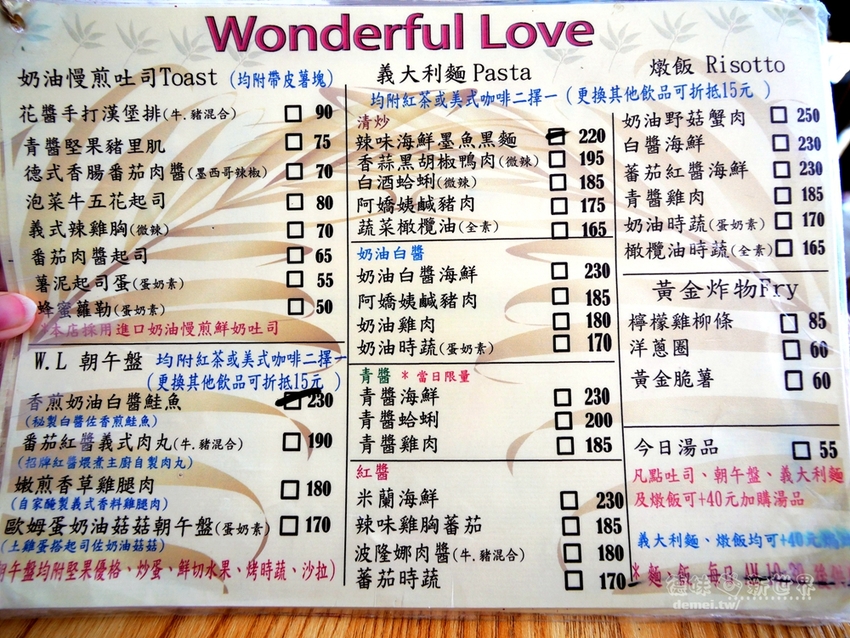 Wonderful Love
奶油慢煎吐司Toast (均附帶皮薯塊)
花醬手打漢堡排(牛.豬混合) 90
青醬堅果豬里肌 75
德式香腸番茄肉醬(墨西哥辣椒) 70
泡菜牛五花起司 80
義式辣雞胸(微辣) 70
番茄肉醬起司 65
薯泥起司蛋(蛋奶素) 55
蜂蜜蘿勒(蛋奶素) 50
*本店採用進口奶油慢煎鮮奶吐司
W.L 朝午盤 均附紅茶或美式咖啡二擇一
(更換其他飲品可折抵15元 )
香煎奶油白醬鮭魚 230
(秘製白醬佐香煎鮭魚)
番茄紅醬義式肉丸(牛.豬混合) 190
(招牌紅醬煨煮主廚自製肉丸)
嫩煎香草雞腿肉 180
(自家醃製義式香料雞腿肉)
歐姆蛋奶油菇菇朝午盤(蛋奶素) 170
(土雞蛋搭起司佐奶油菇菇)
午盤均附堅果優格、炒蛋、鮮切水果、烤時蔬、沙拉)
義大利麵 Pasta
均附紅茶或美式咖啡二擇一(更換其他飲品可折抵15元 )
清炒
辣味海鮮墨魚黑麵 220
香蒜黑胡椒鴨肉(微辣) 195
白酒蛤蜊(微辣) 185
阿嬌姨鹹豬肉 175
蔬菜橄欖油(全素) 165
奶油白醬
奶油白醬海鮮 230
阿嬌姨鹹豬肉 185
奶油雞肉 180
奶油時蔬(蛋奶素) 170
青醬 *當日限量
青醬海鮮 230
青醬蛤蜊 200
青醬雞肉 185
紅醬
米蘭海鮮 230
辣味雞胸番茄 185
波隆娜肉醬(牛.豬混合) 180
番茄時蔬 170
燉飯 Risotto
奶油野菇蟹肉 250
白醬海鮮 230
番茄紅醬海鮮 230
青醬雞肉 185
奶油時蔬(蛋奶素) 170
橄欖油時蔬(全素) 165
黃金炸物Fry
檸檬雞柳條 85
洋蔥圈 60
黃金脆薯 60
今日湯品 55
凡點吐司、朝午盤、義大利麵
及燉飯可+40元加購湯品
義大利麵、燉飯均可+40元
*麵、飯 每日
新世界
demei.tw/